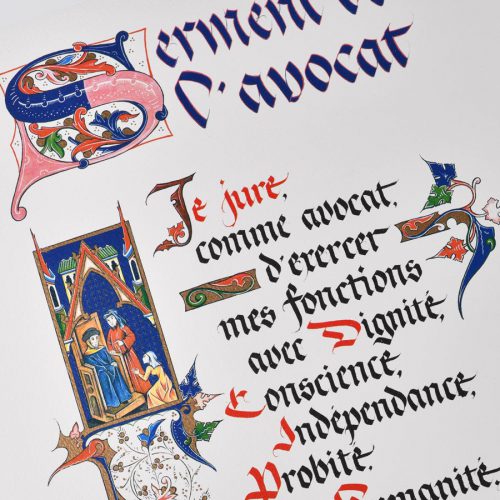 Serment de
l'avocat
Je jure,
comme avocat,
d'exercer
mes fonctions
avec Dignité,
Conscience,
Indépendance,
Probité,
Humanité,